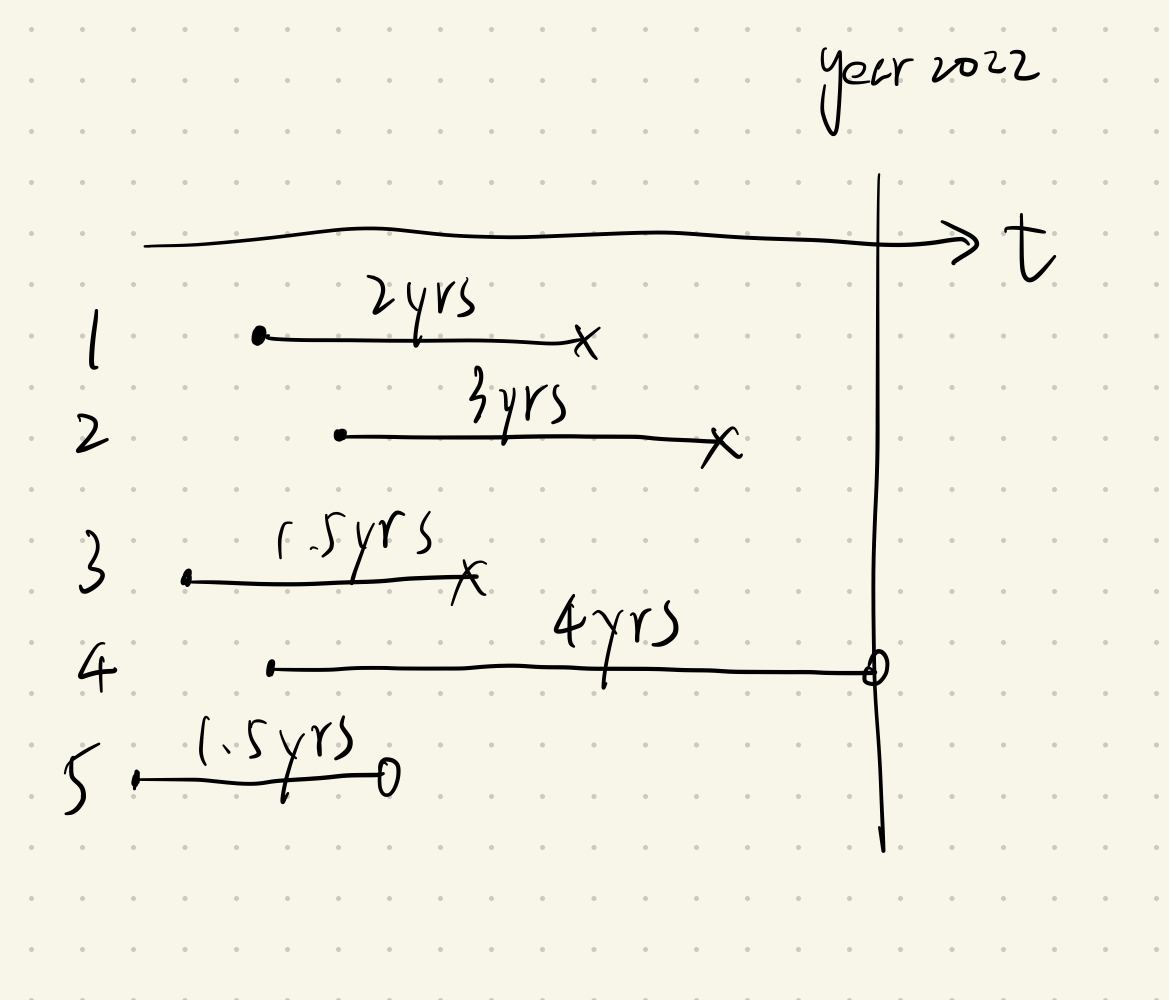 year 2022
t
1 2yrs
2 3yrs
3 1.5yrs
4 4yrs
5 1.5yrs